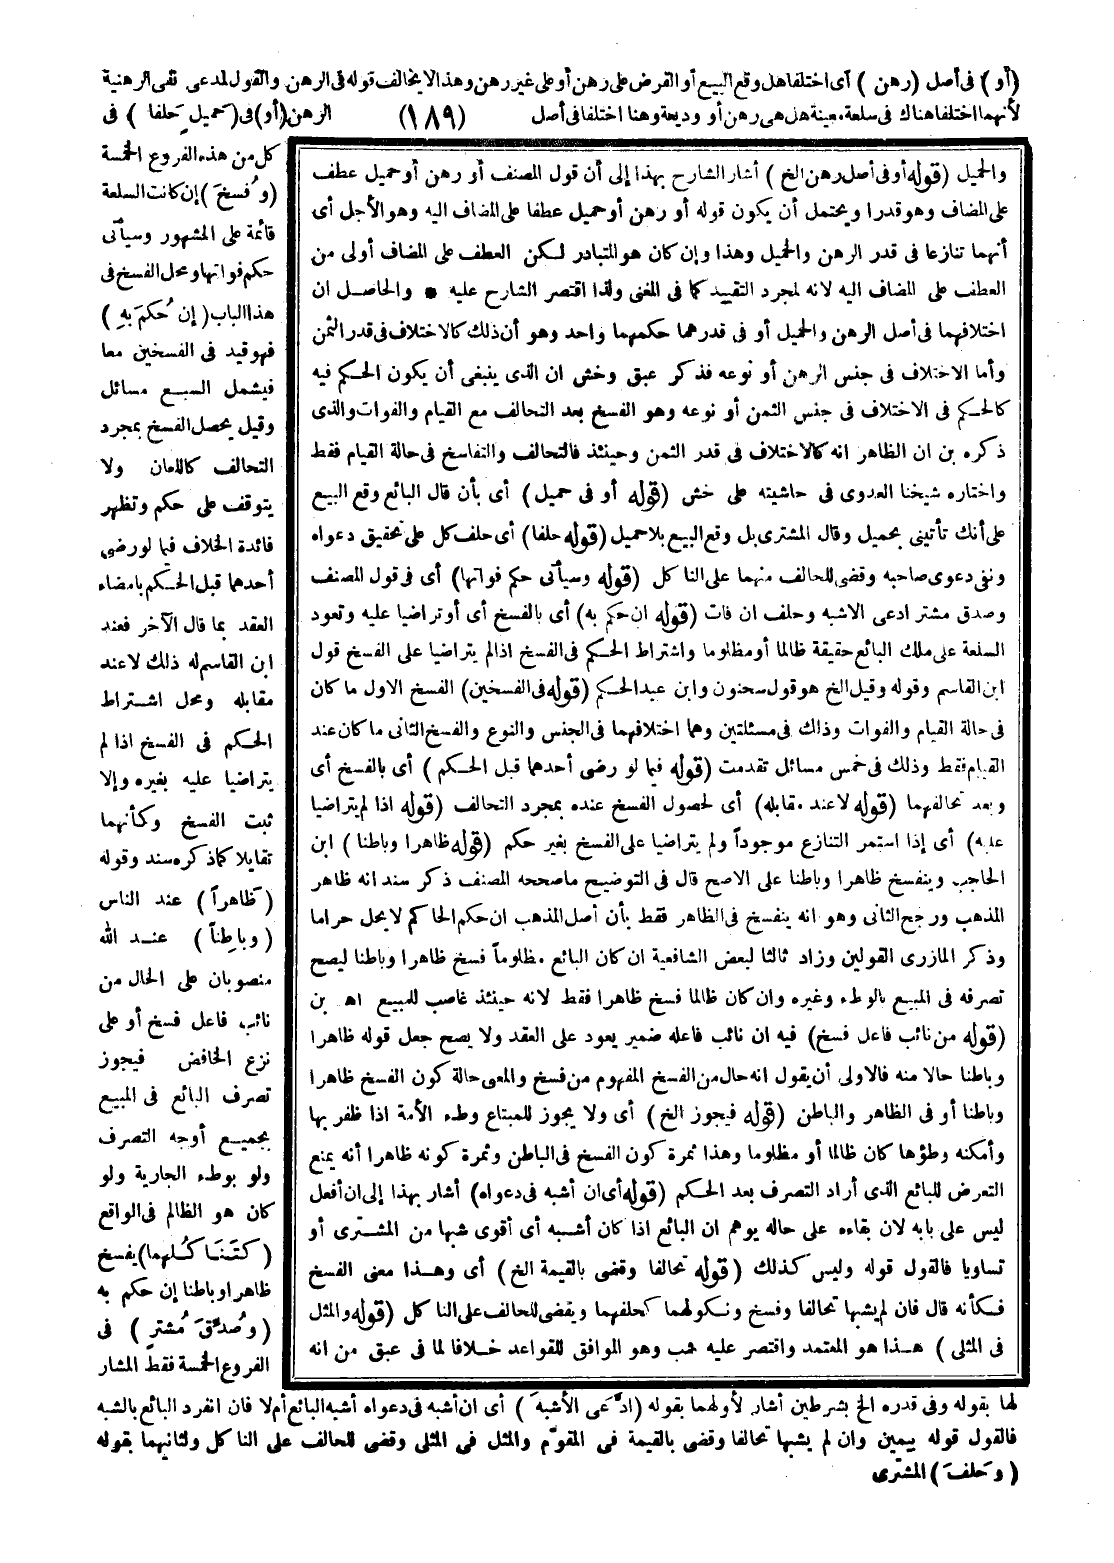 (أو) فى أصل (رهن) أى اختلفا هل وقع البيع أو القرض على رهن أو على غير رهن وهذا لا يخالف قوله فى الرهن والقول لمدعى نفى الرهنية
لأنهما اختلفا هناك فى سلعة معينة هل هى رهن أو وديعة وهنا اختلفا فى أصل (١٨٩) الرهن (أو) فى (حَميلٍ حَلفا) فى
كل من هذه الفروع الخمسة
(وفُسخَ) إن كانت السلعة
قائمة على المشهور وسيأتى
حكم فواتها ومحل الفسخ فى
هذا الباب (إن حُكمَ بهِ)
فهو قيد فى الفسخين معا
فيشمل السبع مسائل
وقيل يحصل الفسخ بمجرد
التحالف كاللعان ولا
يتوقف على حكم وتظهر
فائدة الخلاف فيما لو رضى
أحدهما قبل الحكم بامضاء
العقد بما قال الآخر فعند
ابن القاسم له ذلك لا عند
مقابله ومحل اشتراط
الحكم فى الفسخ اذا لم
يتراضيا عليه بغيره وإلا
ثبت الفسخ وكأنهما
تقايلا كما ذكره سند وقوله
(ظاهراً) عند الناس
(وباطناً) عند الله
منصوبان على الحال من
نائب فاعل فسخ أو على
نزع الخافض فيجوز
تصرف البائع فى المبيع
بجميع أوجه التصرف
ولو بوطء الجارية ولو
كان هو الظالم فى الواقع
(كتَنَاكُلهما) يفسخ
ظاهرا وباطنا إن حكم به
(وصُدِّقَ مُشترٍ) فى
الفروع الخمسة فقط المشار
والحميل (قوله أو فى أصل رهن الخ) أشار الشارح بهذا إلى أن قول المصنف أو رهن أو حميل عطف
على المضاف وهو قدر ا ويحتمل أن يكون قوله أو رهن أو حميل عطفا على المضاف اليه وهو الأجل أى
أنهما تنازعا فى قدر الرهن والحميل وهذا وإن كان هو المتبادر لكن العطف على المضاف أولى من
العطف على المضاف اليه لانه لمجرد التقييد كما فى المغنى ولذا اقتصر الشارح عليه * والحاصل ان
اختلافهما فى أصل الرهن والحميل أو فى قدرهما حكمهما واحد وهو أن ذلك كالاختلاف فى قدر الثمن
وأما الاختلاف فى جنس الرهن أو نوعه فذكر عبق وخش ان الذى ينبغى أن يكون الحكم فيه
كالحكم فى الاختلاف فى جنس الثمن أو نوعه وهو الفسخ بعد التحالف مع القيام والفوات والذى
ذكره بن ان الظاهر انه كالاختلاف فى قدر الثمن وحينئذ فالتحالف والتفاسخ فى حالة القيام فقط
واختاره شيخنا العدوى فى حاشيته على خش (قوله أو فى حميل) أى بأن قال البائع وقع البيع
على أنك تأتينى بحميل وقال المشترى بل وقع البيع بلا حميل (قوله حلفا) أى حلف كل على تحقيق دعواه
ونفى دعوى صاحبه وقضى للحالف منهما على الناكل (قوله وسيأتى حكم فواتها) أى فى قول المصنف
وصدق مشتر ادعى الاشبه وحلف ان فات (قوله ان حكم به) أى بالفسخ أى أو تراضيا عليه وتعود
السلعة على ملك البائع حقيقة ظالما أو مظلوما واشتراط الحكم فى الفسخ اذا لم يتراضيا على الفسخ قول
ابن القاسم وقوله وقيل الخ هو قول سحنون وابن عبد الحكم (قوله فى الفسخين) الفسخ الاول ما كان
فى حالة القيام والفوات وذلك فى مسئلتين وهما اختلافهما فى الجنس والنوع والفسخ الثانى ما كان عند
القيام فقط وذلك فى خمس مسائل تقدمت (قوله فيما لو رضى أحدهما قبل الحكم) أى بالفسخ أى
وبعد تحالفهما (قوله لا عند مقابله) أى لحصول الفسخ عنده بمجرد التحالف (قوله اذا لم يتراضيا
عليه) أى إذا استمر التنازع موجوداً ولم يتراضيا على الفسخ بغير حكم (قوله ظاهرا وباطنا) ابن
الحاجب وينفسخ ظاهرا وباطنا على الاصح قال فى التوضيح ما صححه المصنف ذكر سند انه ظاهر
المذهب ورجح الثانى وهو انه ينفسخ فى الظاهر فقط بأن أصل المذهب ان حكم الحاكم لا يحل حراما
وذكر المازرى القولين وزاد ثالثا لبعض الشافعية ان كان البائع مظلوماً فسخ ظاهرا وباطنا ليصح
تصرفه فى المبيع بالوطء وغيره وان كان ظالما فسخ ظاهرا فقط لانه حينئذ غاصب للمبيع اه بن
(قوله من نائب فاعل فسخ) فيه ان نائب فاعله ضمير يعود على العقد ولا يصح جعل قوله ظاهرا
وباطنا حالا منه فالاولى أن يقول انه حال من الفسخ المفهوم من فسخ والمعنى حالة كون الفسخ ظاهرا
وباطنا أو فى الظاهر والباطن (قوله فيجوز الخ) أى ولا يجوز للمبتاع وطء الأمة اذا ظفر بها
وأمكنه وطؤها كان ظالما أو مظلوما وهذا ثمرة كون الفسخ فى الباطن وثمرة كونه ظاهرا أنه يمنع
التعرض للبائع الذى أراد التصرف بعد الحكم (قوله أى ان أشبه فى دعواه) أشار بهذا إلى ان أفعل
ليس على بابه لان بقاءه على حاله يوهم ان البائع اذا كان أشبه أى أقوى شبها من المشترى أو
تساويا فالقول قوله وليس كذلك (قوله تحالفا وقضى بالقيمة الخ) أى وهذا معنى الفسخ
فكأنه قال فان لم يشبها تحالفا وفسخ ونكولهما كحلفهما ويقضى للحالف على الناكل (قوله والمثل
فى المثلى) هذا هو المعتمد واقتصر عليه هب وهو الموافق للقواعد خلافا لما فى عبق من انه
لها بقوله وفى قدره الخ بشرطين أشار لأولهما بقوله (ادَّعى الأشبهَ) أى ان أشبه فى دعواه أشبه البائع أم لا فان انفرد البائع بالشبه
فالقول قوله بيمين وان لم يشبها تحالفا وقضى بالقيمة فى المقوّم والمثل فى المثلى وقضى للحالف على الناكل ولثانيهما بقوله
(وحلفَ) المشترى